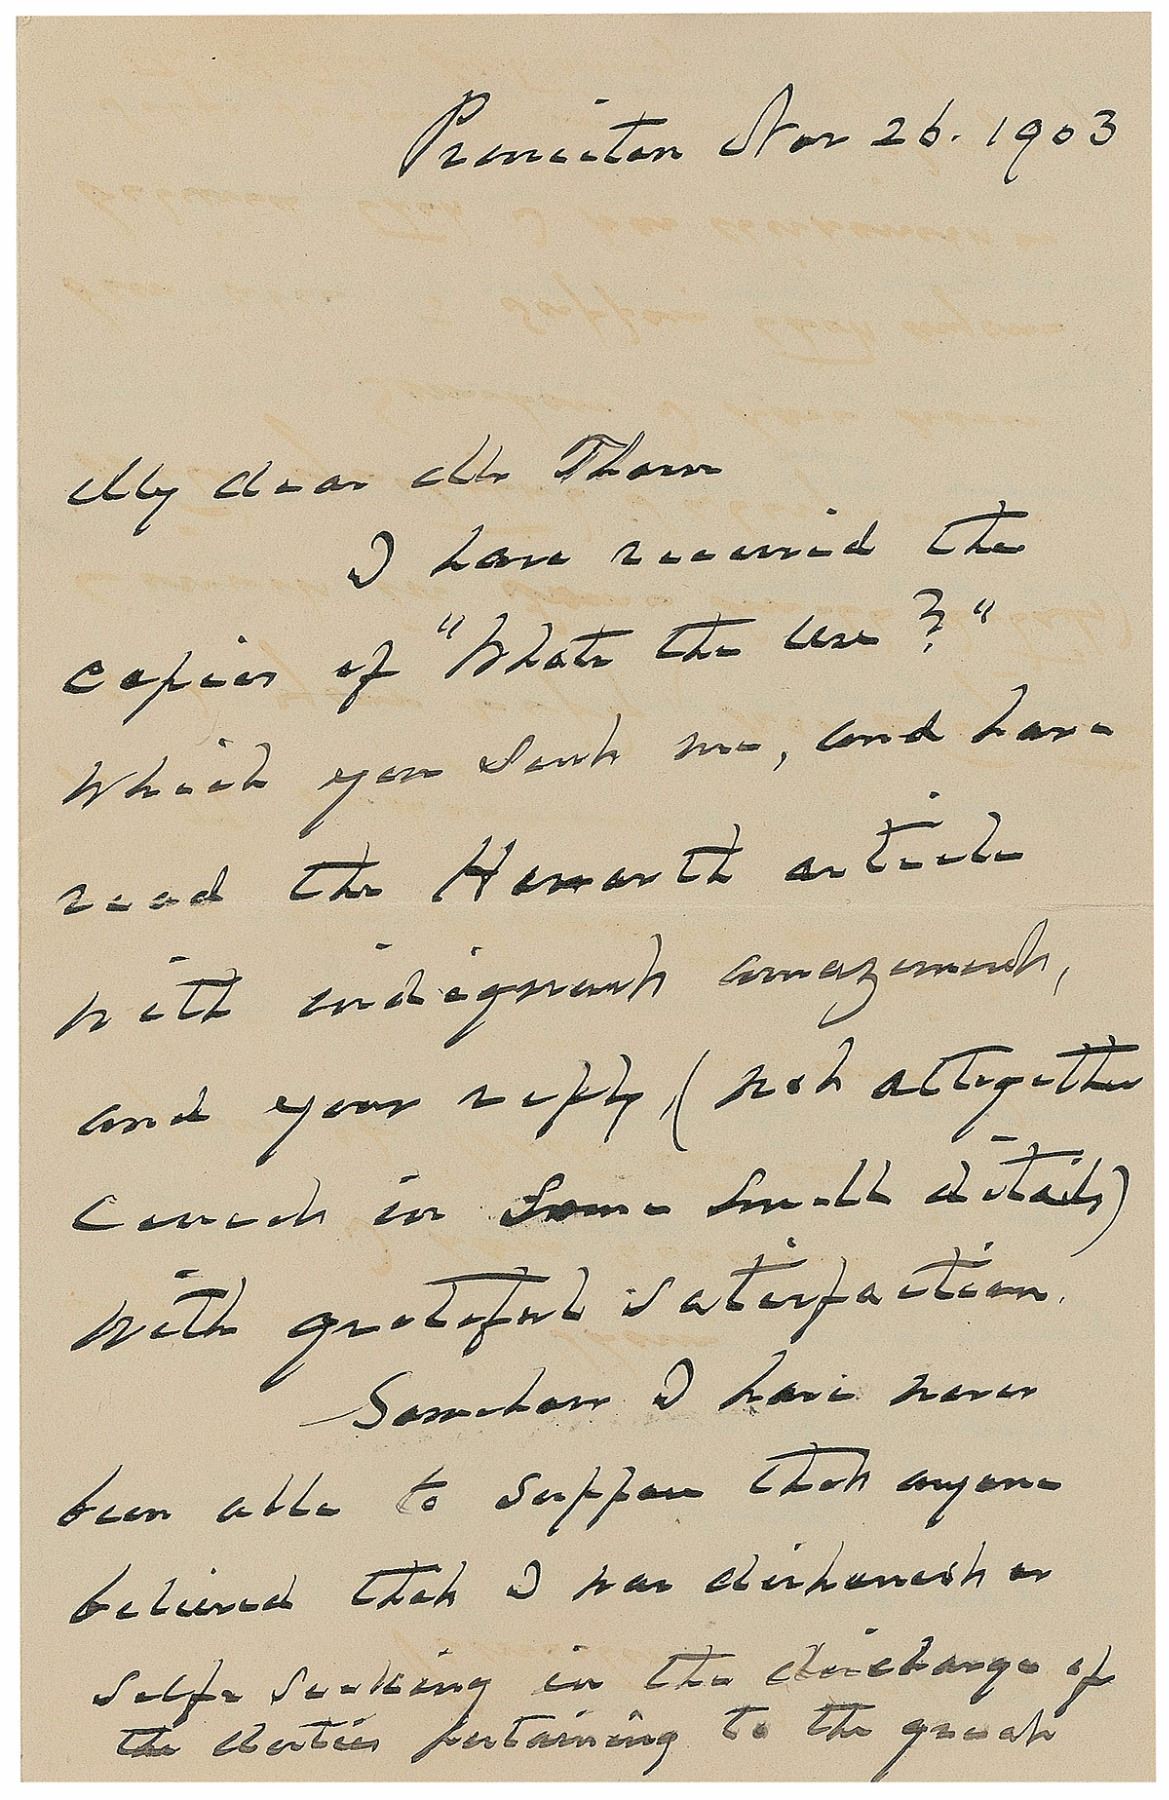 Princeton Nov 26. 1903
My dear Mr Thom
I have received the
copies of "Whats the Use?"
which you sent me, and have
read the Howarth article
with indignant amazement,
and your reply, (not altogether
correct in some small details)
with grateful satisfaction.
Somehow I have never
been able to suppose that anyone
believed that I was dishonest or
self seeking in the discharge of
the duties pertaining to the great